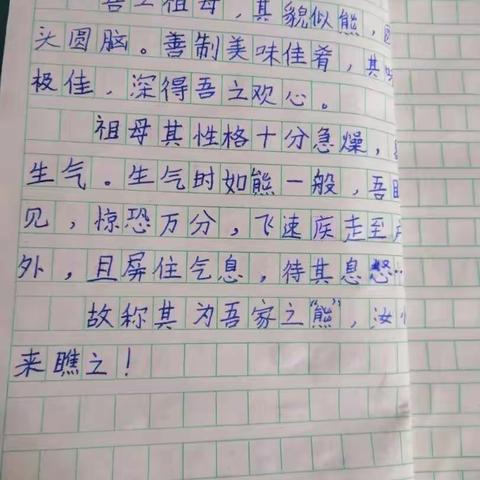 吾之祖母，其貌似熊，圆
头圆脑。善制美味佳肴，其味
极佳，深得吾之欢心。
祖母其性格十分急燥，易
生气。生气时如熊一般，吾
见，惊恐万分，飞速疾走至
外，且屏住气息，待其息怒…
故称其为吾家之“熊”，汝
来瞧之！